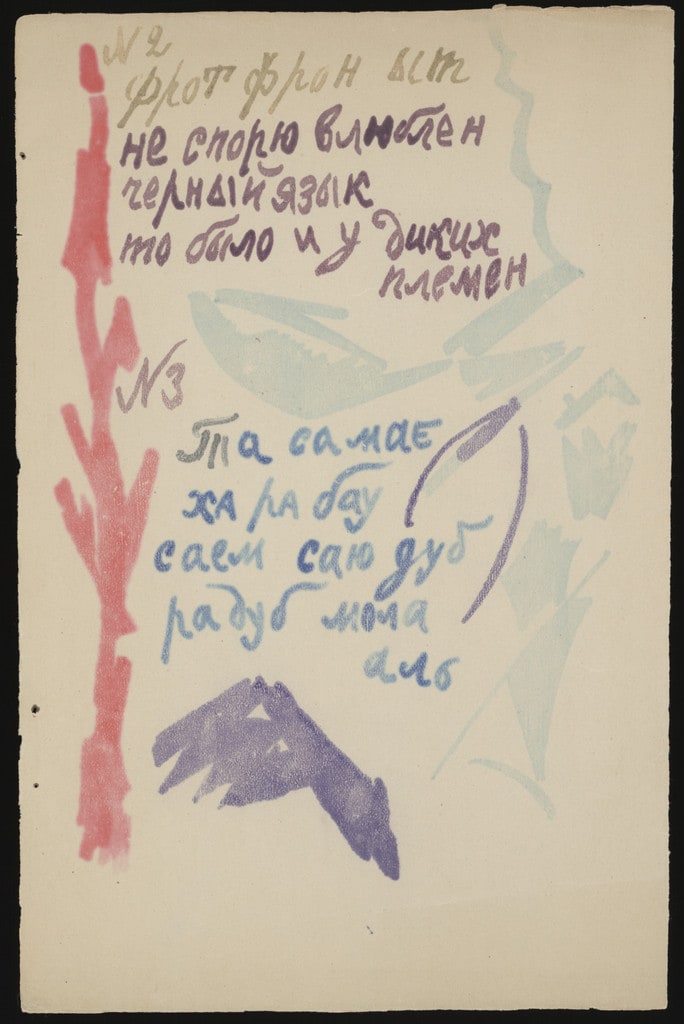 № 2
фрот фрон ыт
не спорю влюблен
черный язык
то было и у диких
племен
№ 3
Та са мае
ха ра бау
саем саю дуб
радуб мола
аль